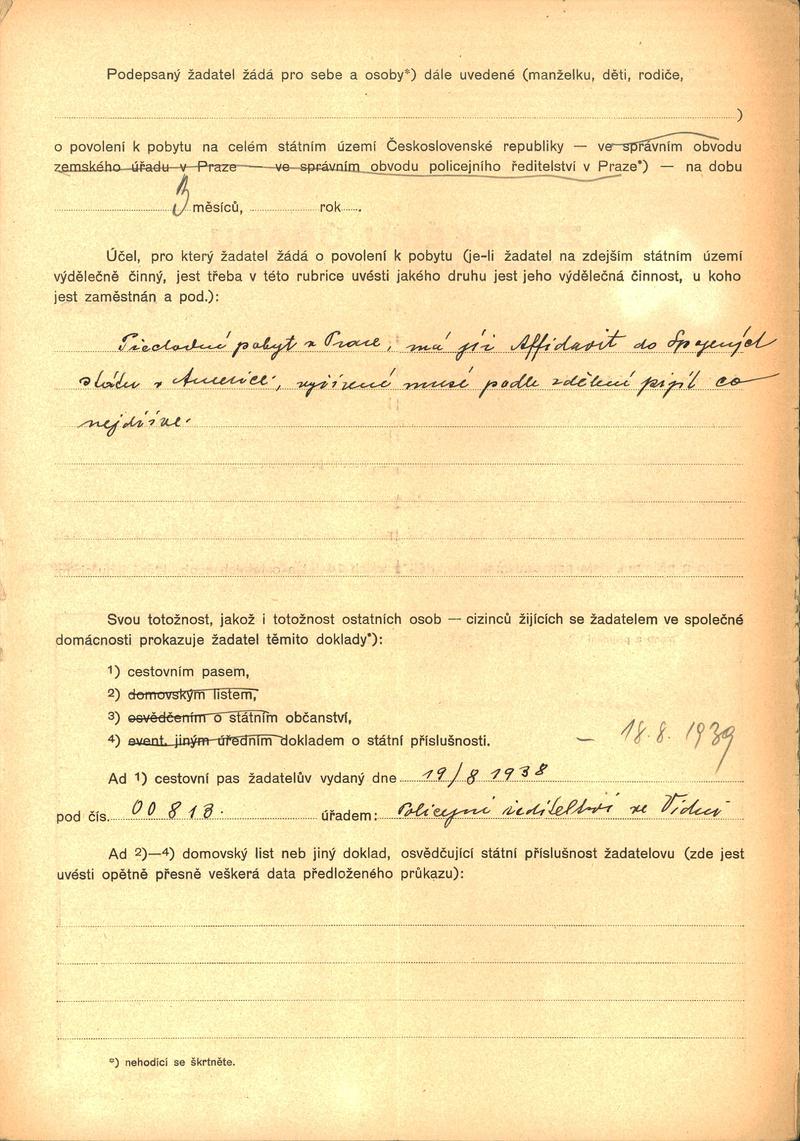 Podepsaný žadatel žádá pro sebe a osoby*) dále uvedené (manželku, děti, rodiče,
)
o povolení k pobytu na celém státním území Československé republiky — ve správním obvodu
zemského úřadu v Praze — ve správním obvodu policejního ředitelství v Praze*) — na dobu
3 měsíců, rok .
Účel, pro který žadatel žádá o povolení k pobytu (je-li žadatel na zdejším státním území
výdělečně činný, jest třeba v této rubrice uvésti jakého druhu jest jeho výdělečná činnost, u koho
jest zaměstnán a pod.):
Přechodní pobyt v Praze, má již Affidavit do Spojených
států v Americe, vyřízené musí podle sdělení přijít co
nejdříve.
Svou totožnost, jakož i totožnost ostatních osob — cizinců žijících se žadatelem ve společné
domácnosti prokazuje žadatel těmito doklady*):
1) cestovním pasem,
2) domovským listem,
3) osvědčením o státním občanství,
4) event. jiným úředním dokladem o státní příslušnosti. — 18.8.1939
Ad 1) cestovní pas žadatelův vydaný dne 19/8 1938
pod čís. 00813. úřadem: Policejní ředitelství ve Vídni
Ad 2)—4) domovský list neb jiný doklad, osvědčující státní příslušnost žadatelovu (zde jest
uvésti opětně přesně veškerá data předloženého průkazu):
*) nehodící se škrtněte.